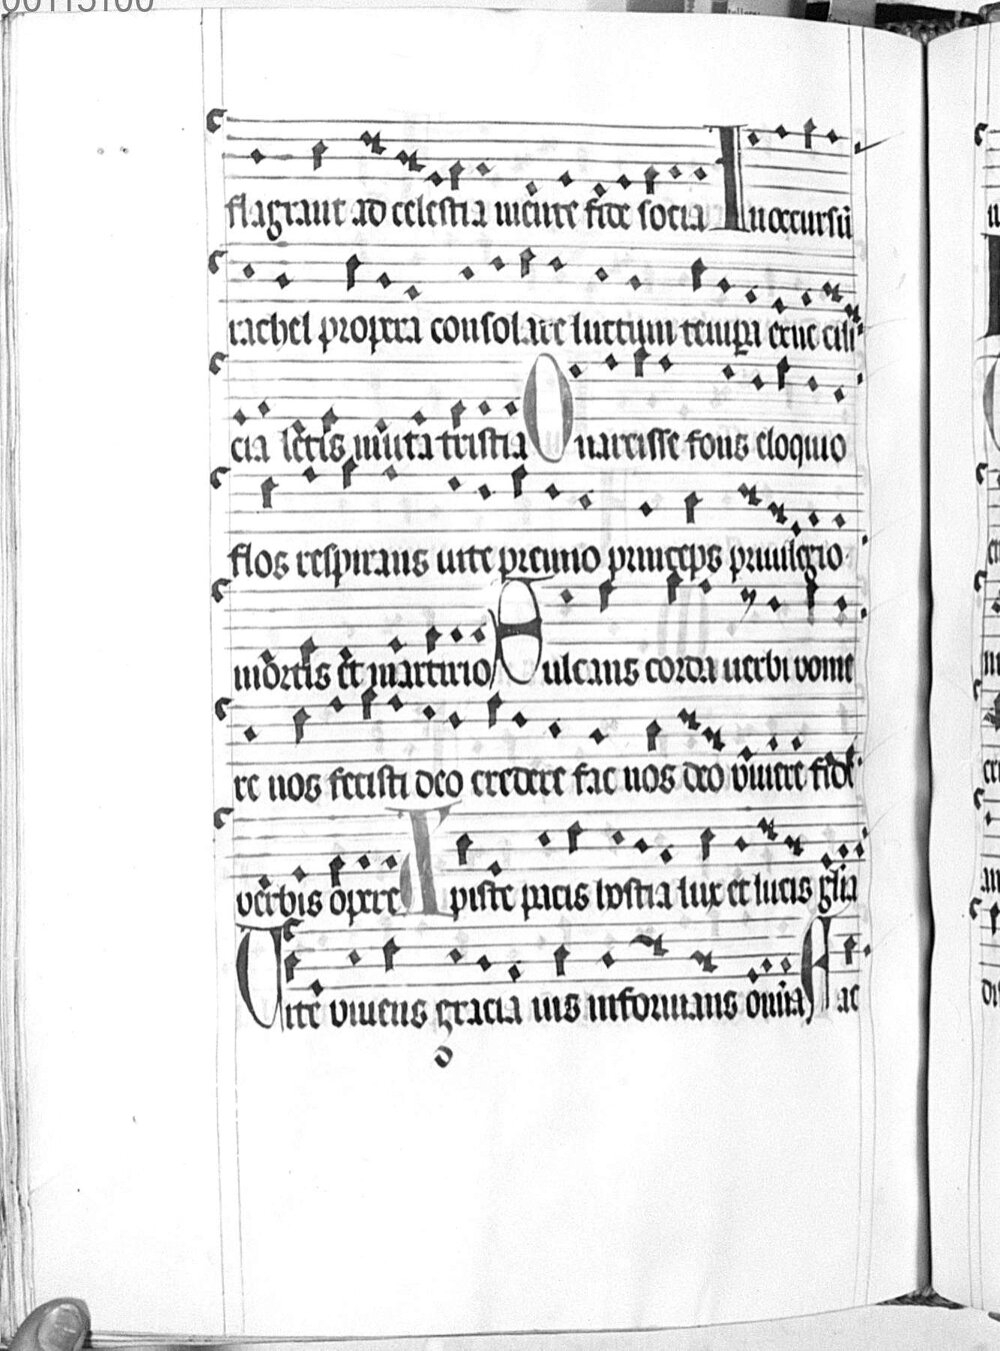 flagrant ad celestia uicture fide socia In occursū
rachel propera consolare luctum tempera exue cili
cia letis muta tristia O narcisse fons eloquio
flos respirans uite premio princeps priuilegio
mortis et martirio Sulcans corda uerbi vome
re nos fecisti deo credere fac nos deo viuere fidei
verbis opere Xpiste pacis hostia lux et lucis glīa
Vite viuens gracia uis informans omīa Fac